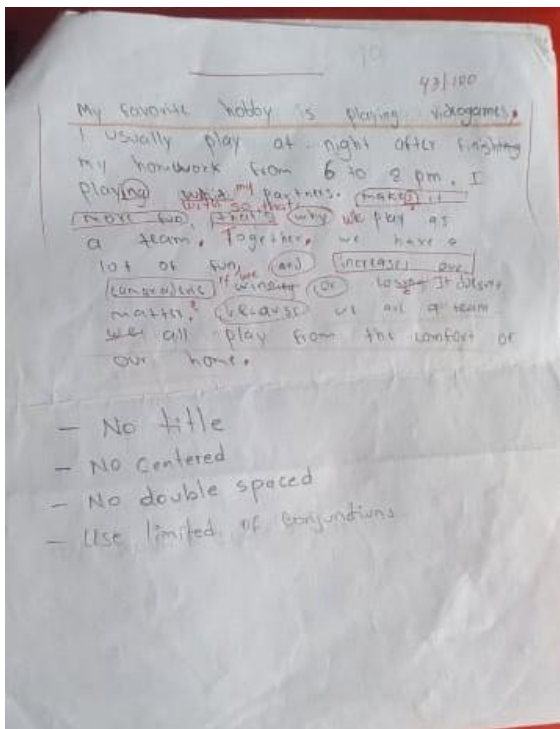 43/100
My favorite hobby is playing videogames.
I usually play at night after finishing
my homework from 6 to 8 pm. I
playing with my partners. makes it
with so that
more fun, that's why we play as
a team. Together, we have a
lot of fun, and increases our
if we or It doesn't
matter. because we are a team
we all play from the comfort of
our home.
- No title
- No centered
- No double spaced
- Use limited of conjuntions